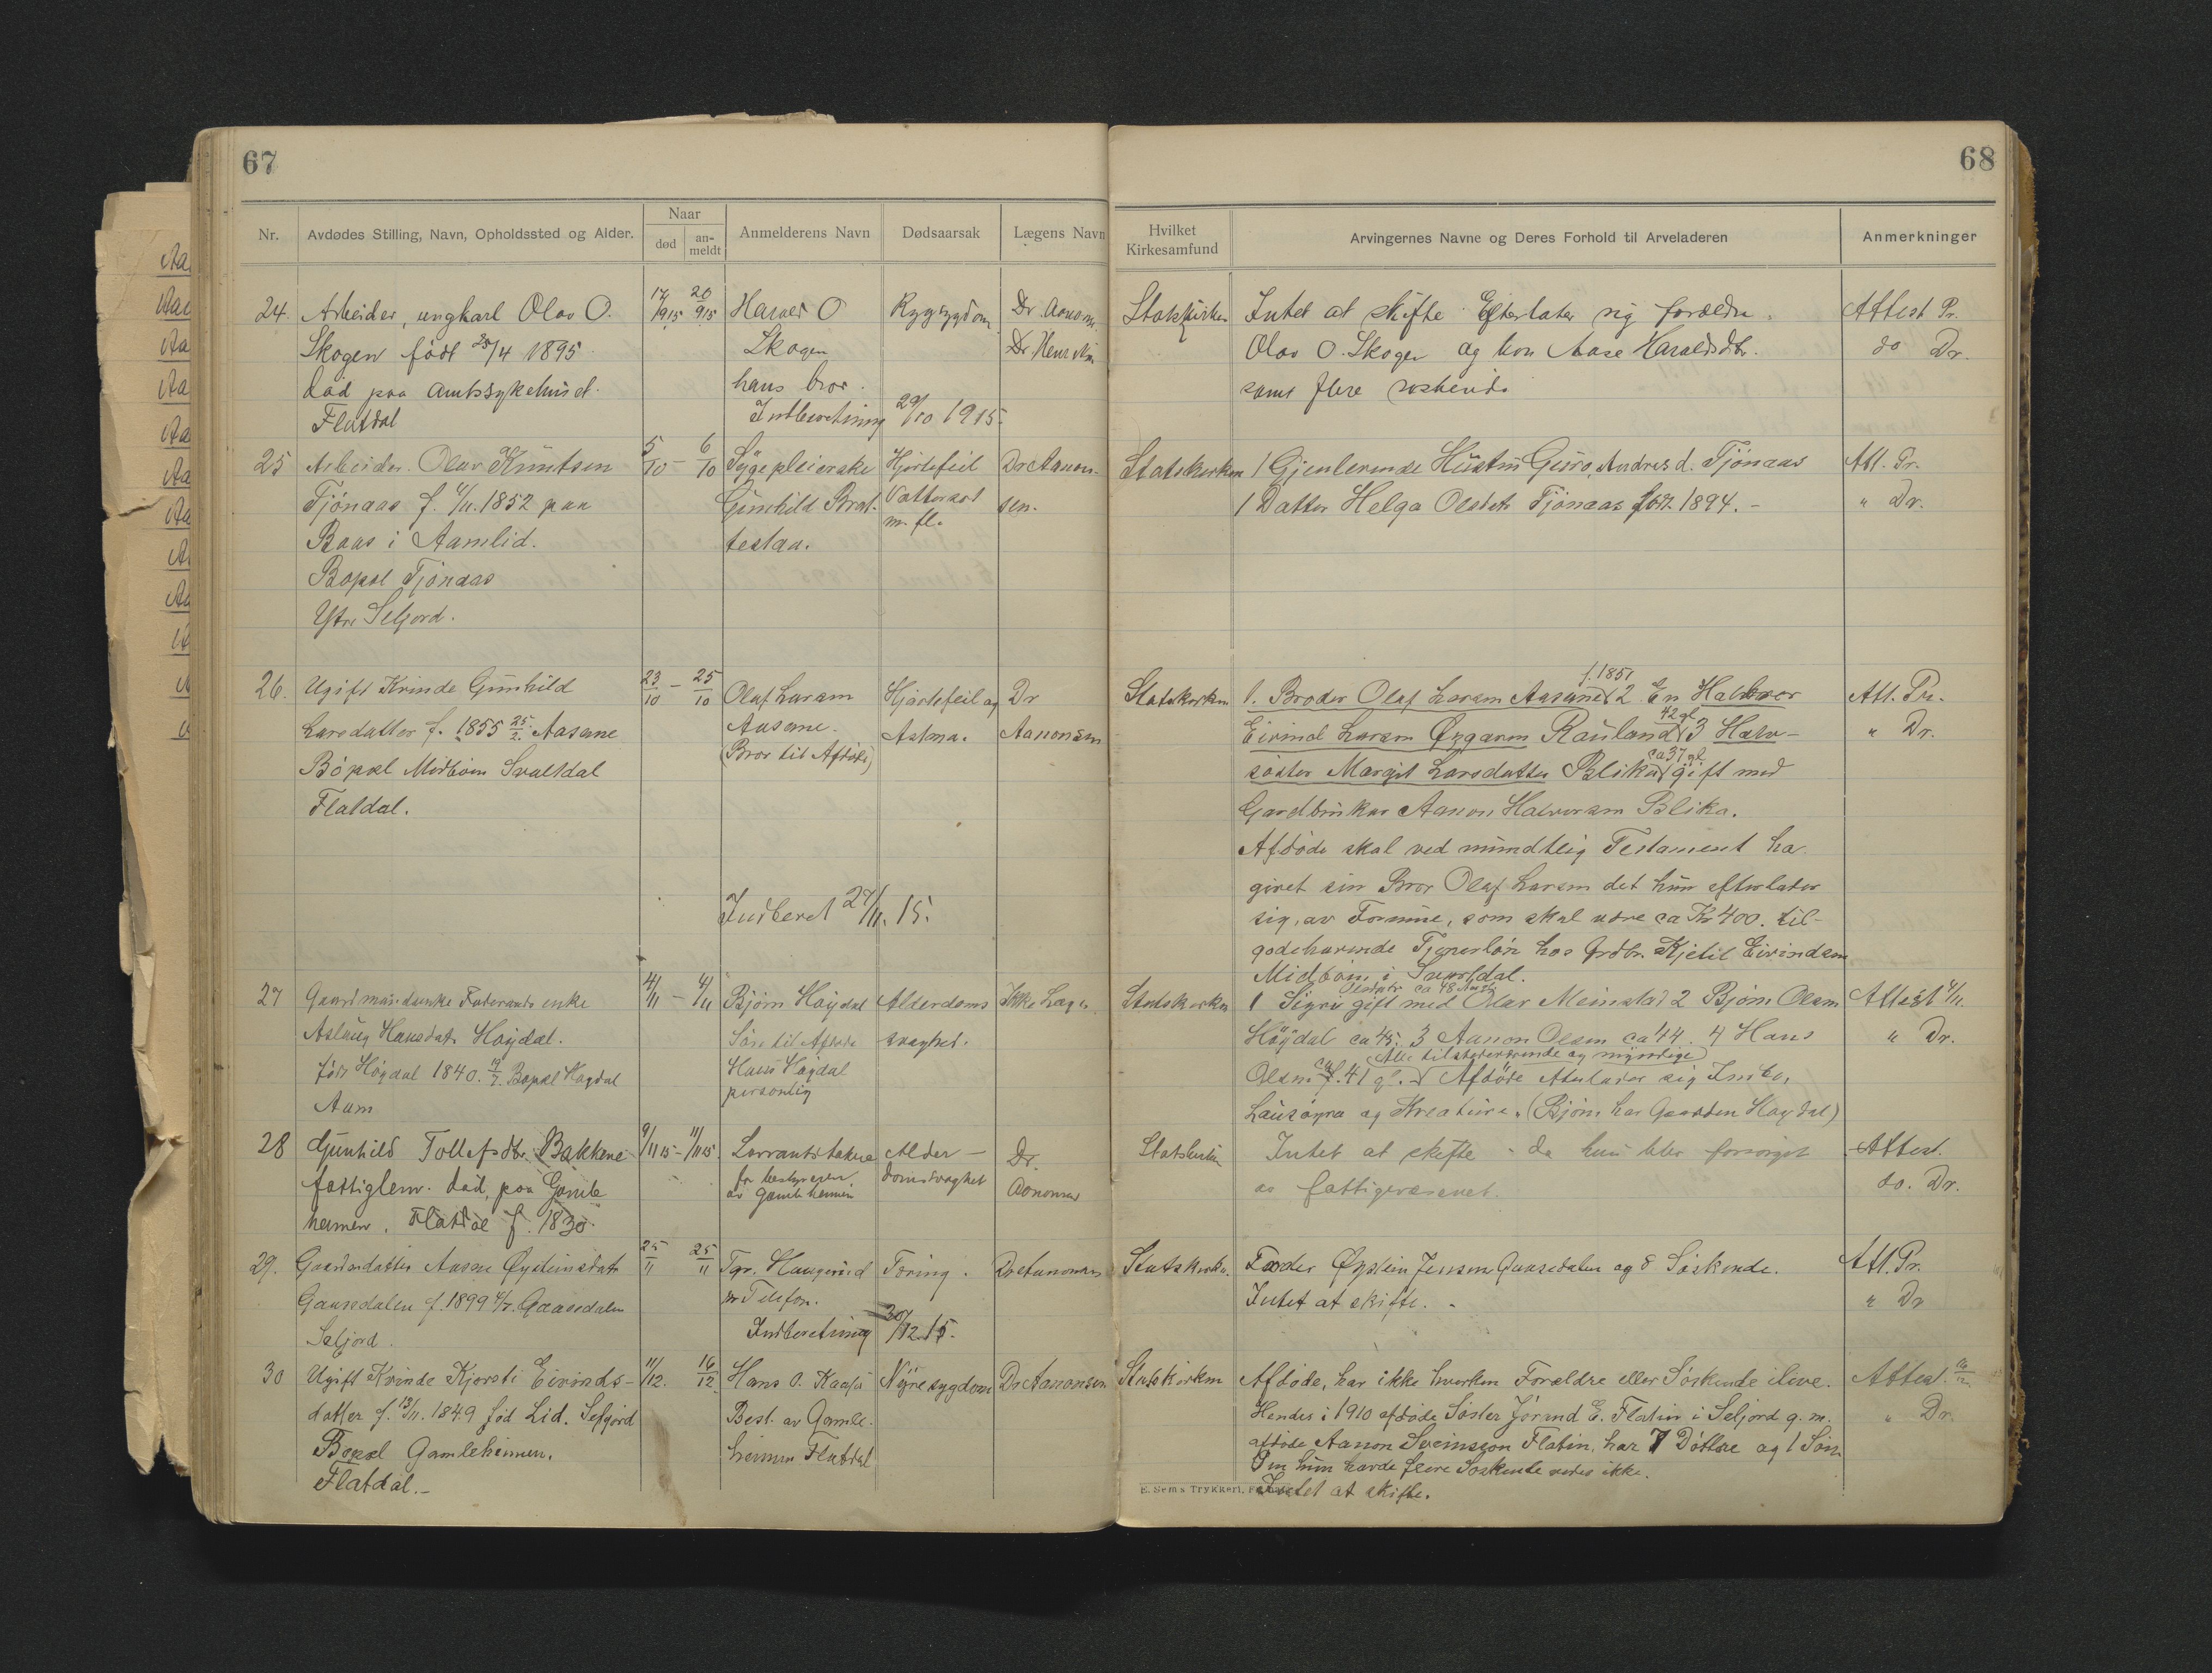 67
Nr. Avdødes Stilling, Navn, Opholdssted og Alder. Naar død an-meldt Anmelderens Navn Dødsaarsak Lægens Navn
24. Arbeider, ungkarl Olav O. 17/9 15 20/9 15 Harald O Rygsygdom Dr Aanons.
Skogen født 20/4 1895 Skogen
død paa amtssykehuset. hans bror.
Flatdal Indberetning 29/10 1915.
25 Arbeider. Olav Knutsen 5/10 - 6/10 Sygepleierske Hjertefeil Dr Aanon-
Tjönaas f. 4/11. 1852 paa Gunhild Brat- Vattersot sen.
Baas i Aamlid. testaa. m. fl.
Bopæl Tjönaas
Ytre Seljord.
26. Ugift Kvinde Gunhild 23/10 - 25/10 Olaf Larsen Hjertefeil og Dr
Larsdatter f. 1855 25/2. Aasane Aasane. Astma. Aanonsen
Böpæl Midböen Svaltdal (Bror til Afdöde)
Flatdal.
Indberet 27/11. 15.
27 Gaardmandsenke Föderaads enke 4/11 - 4/11 Bjørn Høydal Alderdoms Ikke Læge.
Aslaug Hansdatr Høydal. Søn til Afdøde svaghet.
født Høydal 1840. 12/7. Bopæl Høydal Hans Høydal
Aam personlig
28 Gunhild Tollefsdtr. Bakkene 9/11 15 - 11/11 15 Alder- Dr.
fattiglem. död, paa Gamle for bestyreren domssvaghet Aanonsen
hemen. Flatdal f. 1830. av Gamlehemen
29. Gaardsdatter Aasne Øysteinsdatr 25/11 25/11 Tgr. Haugerud Tæring. Dr Aanonsen
Gaasedalen f. 1899 4/7. Gaasedalen pr Telefon.
Seljord. Indberetning 30/12 15.
30 Ugift Kvinde Kjersti Eivinds- 11/12. 16/12 Hans O. Kaasa Nyresygdom Dr Aanonsen
datter f. 13/11. 1849 fød Lid. Seljord Best. av Gamle-
Bopæl Gamleheimen. heimen Flatdal
Flatdal.-
68
Hvilket Kirkesamfund Arvingernes Navne og Deres Forhold til Arveladeren Anmerkninger
Statskirken Intet at skifte Efterlater sig forældre. Attest Pr.
Olav O. Skogen og kon Aase Haraldsdtr. do Dr.
samt flere søskende
Statskirken 1 Gjenlevende Hustru Guro Andresd. Tjönaas Att. Pr.
1 Datter Helga Olsdtr Tjönaas född. 1894. - " Dr.
f. 1851
Statskirken 1. Broder Olaf Larsen Aasane 2 En Halvbror Att. Pr.
42 gl.
Eivind Larsen Øygaren Rauland 3 Halv- " Dr.
ca 37 gl.
söster Margit Larsdatter Blika gift med
Gardbruker Aanon Halvorsen Blika.
Afdöde skal ved mundtlig Testament ha
givet sin Bror Olaf Larsen det hun efterlater
sig, av Formue, som skal være ca Kr 400. til-
godehavende Tjenerløn hos Grdbr. Kjetil Eivindsen
Midböen i Svaltdal.
Olsdatr ca 48 Aar
Statskirken 1 Sigri gift med Olav Meinstad 2 Bjørn Olsen Attest 4/11.
Höydal ca 45. 3 Aanon Olsen ca 44. 4 Hans " Dr.
(Alle tilstedeværende og myndige)
Olsen ca 41 gl. Afdöde efterlader sig Indbo,
Lausøyra og Kreature. (Bjørn har Gaarden Høydal)
Statskirken Intet at skifte - da hun blev forsørget Attest.
av fattigvæsenet. do. Dr.
Statskirken. Fader Øystein Jensen Gaasedalen og 8 Søskende. Att. Pr.
Intet at skifte. - " Dr
Statskirken Afdöde, har ikke hverken Forældre eller Søskende ilive. Attest.
Hendes i 1910 afdøde Søster Jørand E. Flatin i Seljord g. m. " Dr.
afdøde Aanon Sveinsson Flatin, har 7 Döttre og 1 Søn
Om hun havde flere Søskende vides ikke.
Intet at skifte.
E. Sems Trykkeri,